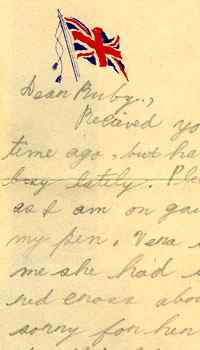 Dear Ruby.,
Recieved yo
time ago, but ha
busy lately. Ple
as I am on gua
my pen. Vera
me she had
red cross abou
sorry for her